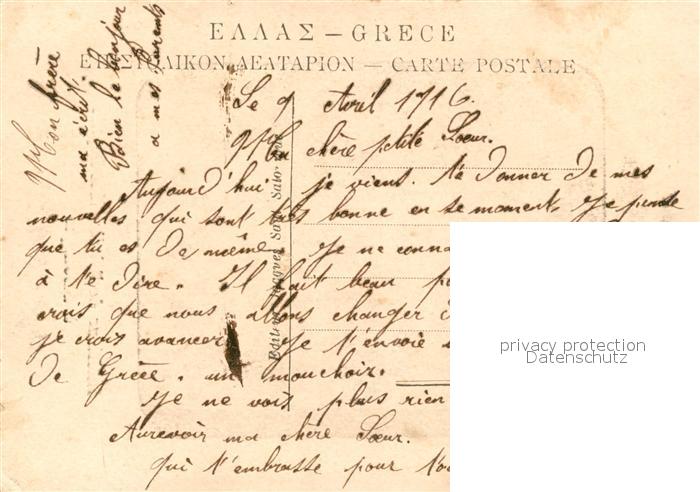 ΕΛΛΑΣ – GRECE
ΕΠΙΣΤΟΛΙΚΟΝ ΔΕΛΤΑΡΙΟΝ — CARTE POSTALE
Mon frère
m'a écrit.
Bien le bonjour
a mes parents
Le 9 Avril 1916.
Ma chère ptite Sœur.
Aujourd'hui je viens te donner de mes
nouvelles qui sont très bonne en se moment. Je pense
que tu es de même. Je ne
à te dire. Il fait beau
crois que nous allons changer
je crois avancer Je t'envoie
de Grèce. un mouchoir.
Je ne vois plus rien
Aurevoir ma chère Sœur.
qui t'embrasse pour
Editeur Jacques Saul
privacy protection
Datenschutz